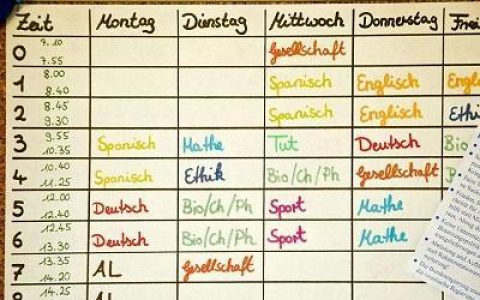 Zeit Montag Dienstag Mittwoch Donnerstag Frei
0 7.10 7.55 Gesellschaft
1 8.00 8.40 Spanisch Englisch Engl
2 8.45 9.30 Spanisch Englisch Ethi
3 9.55 10.35 Spanisch Mathe Tut Deutsch Bio
4 10.40 11.25 Spanisch Ethik Bio/Ch/Ph Gesellschaft
5 12.00 12.40 Deutsch Bio/Ch/Ph Sport Mathe
6 12.45 13.30 Deutsch Bio/Ch/Ph Sport Mathe
7 13.35 14.20 AL Gesellschaft
14.25 AL